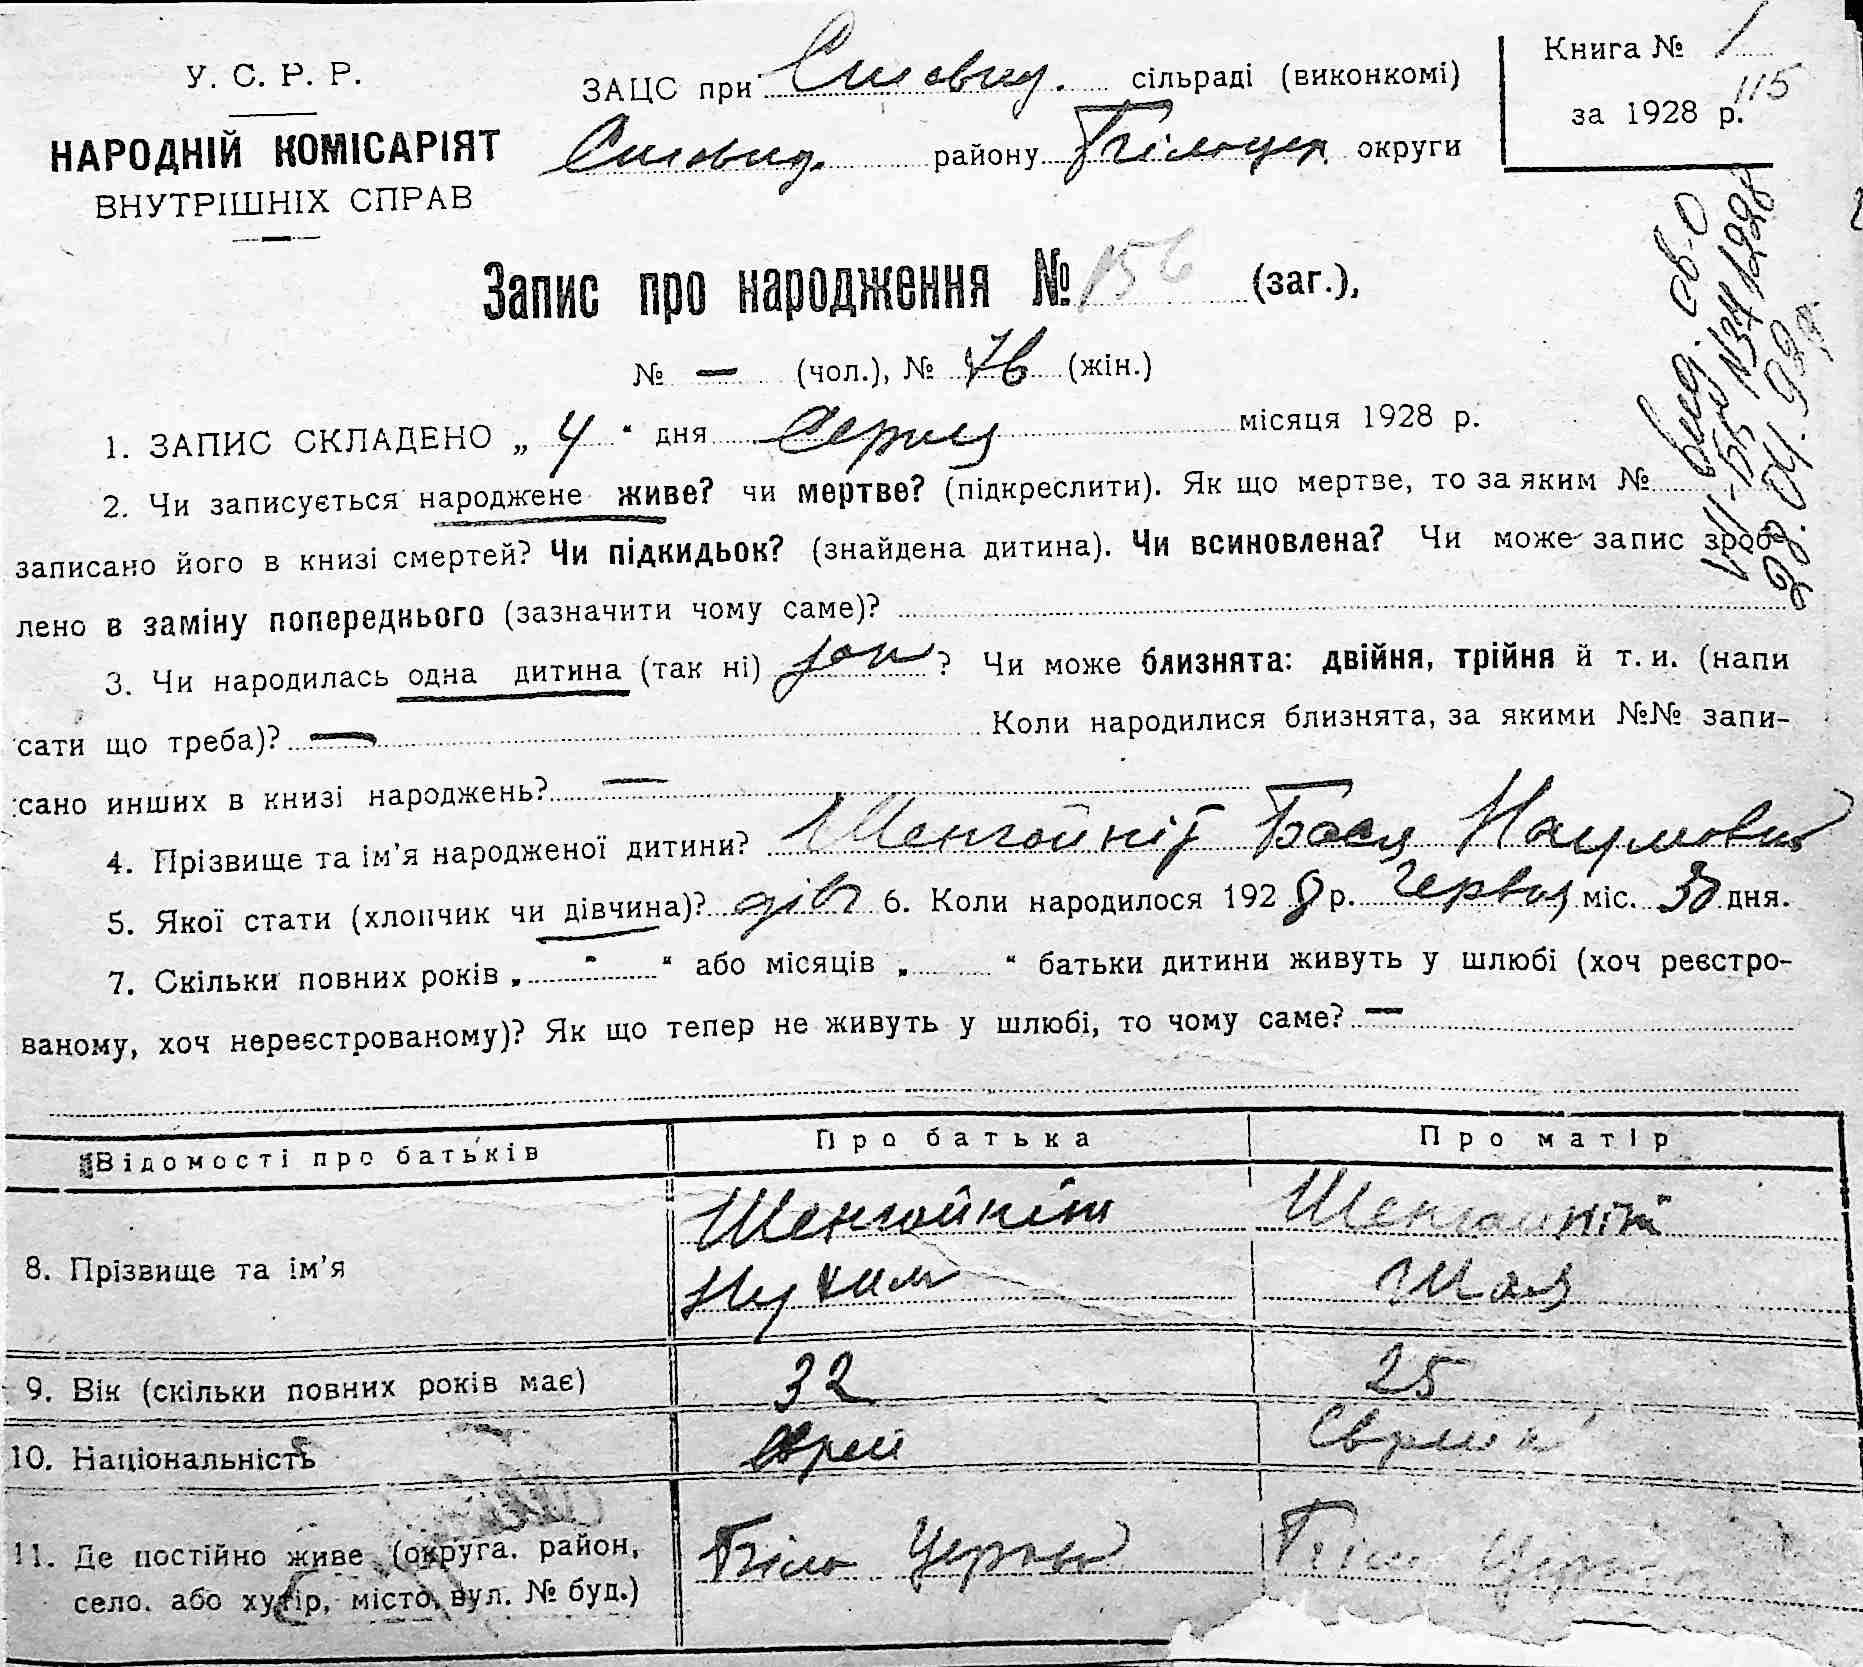 У. С. Р. Р.
НАРОДНІЙ КОМІСАРІЯТ
ВНУТРІШНІХ СПРАВ
ЗАЦС при сільраді (виконкомі)
району Білоцер. округи
Книга № 1
115
за 1928 р.
Запис про народження № 156 (заг.),
№ — (чол.), № 76 (жін.)
1. ЗАПИС СКЛАДЕНО „ 4 “ дня Серпня місяця 1928 р.
2. Чи записується народжене живе? чи мертве? (підкреслити). Як що мертве, то за яким №
записано його в книзі смертей? Чи підкидьок? (знайдена дитина). Чи всиновлена? Чи може запис зроб-
лено в заміну попереднього (зазначити чому саме)?
3. Чи народилась одна дитина (так ні) так ? Чи може близнята: двійня, трійня й т. и. (напи
сати що треба)? — Коли народилися близнята, за якими №№ запи-
сано инших в книзі народжень? —
4. Прізвище та ім’я народженої дитини? Шенгойніт Бася Наумовна
5. Якої стати (хлопчик чи дівчина)? дівч 6. Коли народилося 1928 р. Червня міс. 30 дня.
7. Скільки повних років „ “ або місяців „ “ батьки дитини живуть у шлюбі (хоч реєстро-
ваному, хоч нереєстрованому)? Як що тепер не живуть у шлюбі, то чому саме? —
Відомості про батьків Про батька Про матір
8. Прізвище та ім’я Шенгойніт Шенгойніт
Нухим Шая
9. Вік (скільки повних років має) 32 25
10. Національність Єврей Єврейк
11. Де постійно живе (округа, район, Біла Церква Біла Церква
село, або хутір, місто, вул. № буд.)